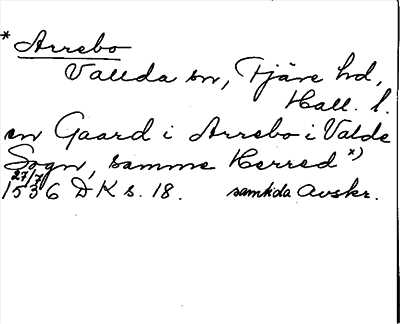 * Arrebo
Vallda sn, Fjäre hd,
Hall. l.
en Gaard i Arrebo i Valde
Sogn, samme Herred *)
27/7
1536 DK s. 18. samtida Avskr.